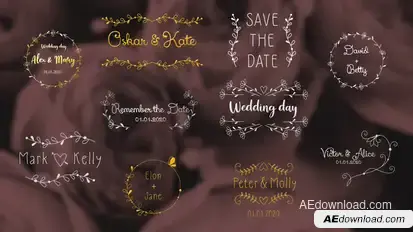 Wedding day
Alex & Mary
Oskar & Kate
SAVE
THE
DATE
David
+
Betty
Remember the Date
01.01.2020
Wedding day
01.01.2020
Mark
Kelly
Elon
+
Jane
Peter & Molly
01.01.2020
Victor & Alice
01.01.2020
AEdownload.com
AEdownload.com